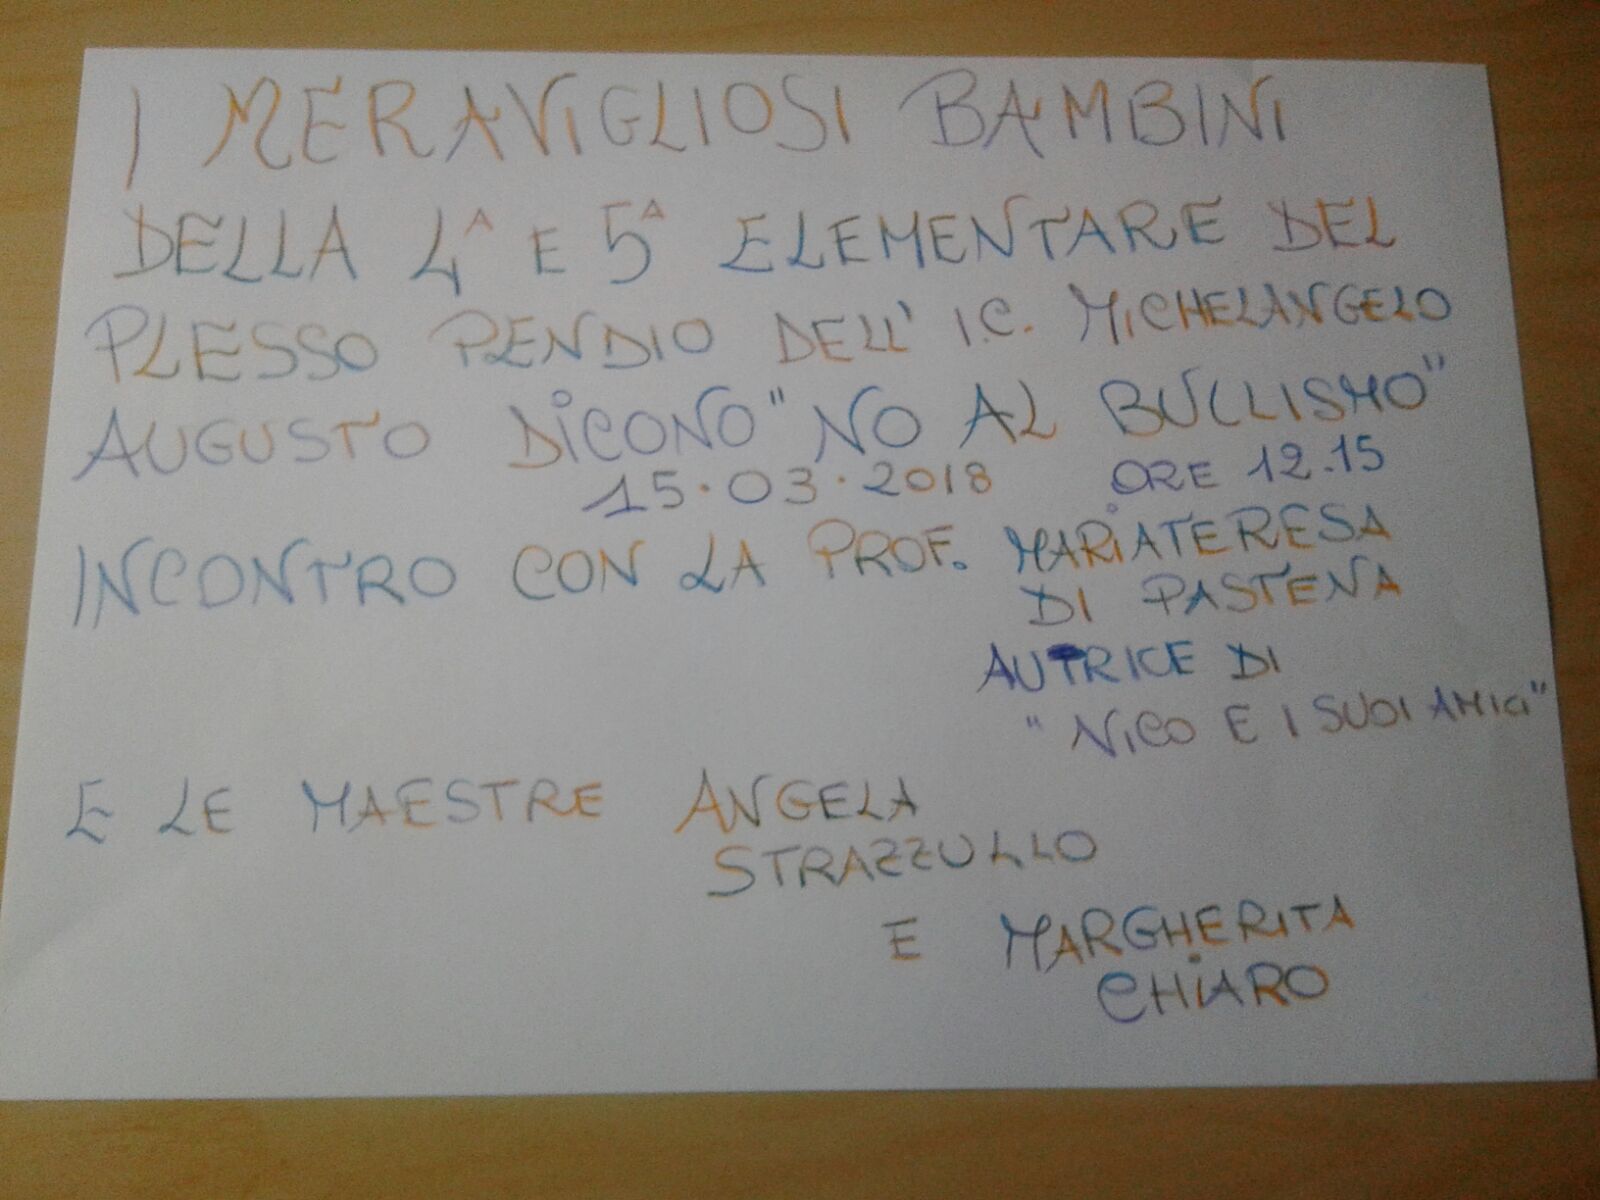 I MERAVIGLIOSI BAMBINI
DELLA 4^ E 5^ ELEMENTARE DEL
PLESSO PENDIO DELL' I.C. MICHELANGELO
AUGUSTO DICONO "NO AL BULLISMO"
15.03.2018 ORE 12.15
INCONTRO CON LA PROF. MARIATERESA
DI PASTENA
AUTRICE DI
"NICO E I SUOI AMICI"
E LE MAESTRE ANGELA
STRAZZULLO
E MARGHERITA
CHIARO